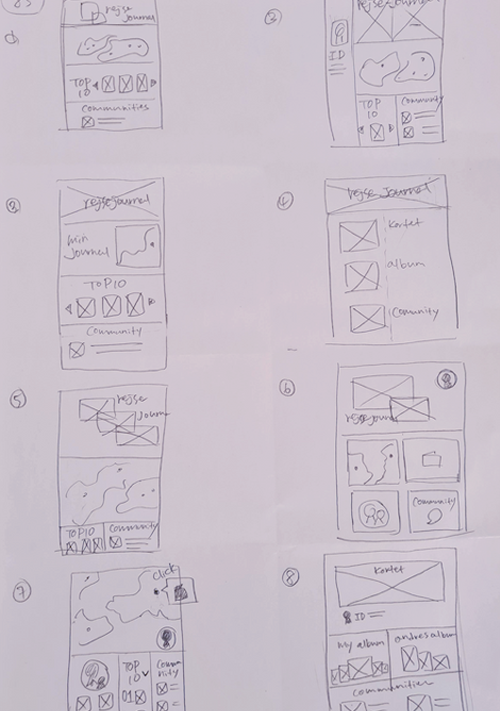 rejse
journal
TOP
10
Communities
2
rejse Journal
ID
TOP
10
Community
3
rejsejournal
min
Journal
TOP10
Community
4
rejse Journal
Kortet
album
Comunity
5
rejse
Journ
TOP10
Community
6
rejsejournal
Community
7
click
TOP
10
01
Commu
nity
8
Kortet
ID
my album
andres album
Communities